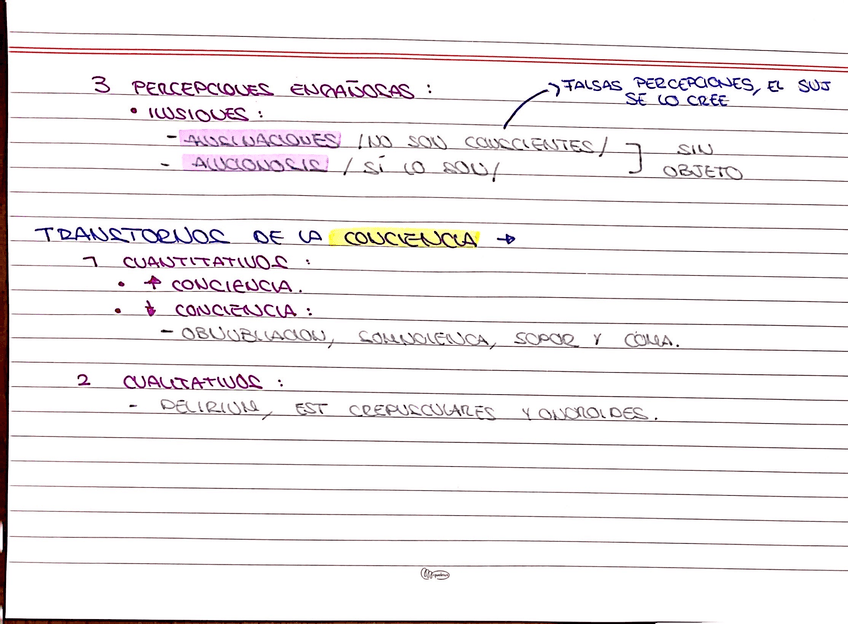 3 PERCEPCIONES ENGAÑOSAS :
→ FALSAS PERCEPCIONES, EL SUJ
SE LO CREE
• ILUSIONES :
- ALUCINACIONES / NO SON CONSCIENTES / ] SIN
- ALUCIONOSIS / SÍ LO SON / OBJETO
TRANSTORNOS DE LA CONCIENCIA →
1 CUANTITATIVOS :
• ↑ CONCIENCIA.
• ↓ CONCIENCIA :
- OBNUBILACION, SOMNOLENCIA, SOPOR Y COMA.
2 CUALITATIVOS :
- DELIRIUM, EST CREPUSCULARES Y ONOROIDES.